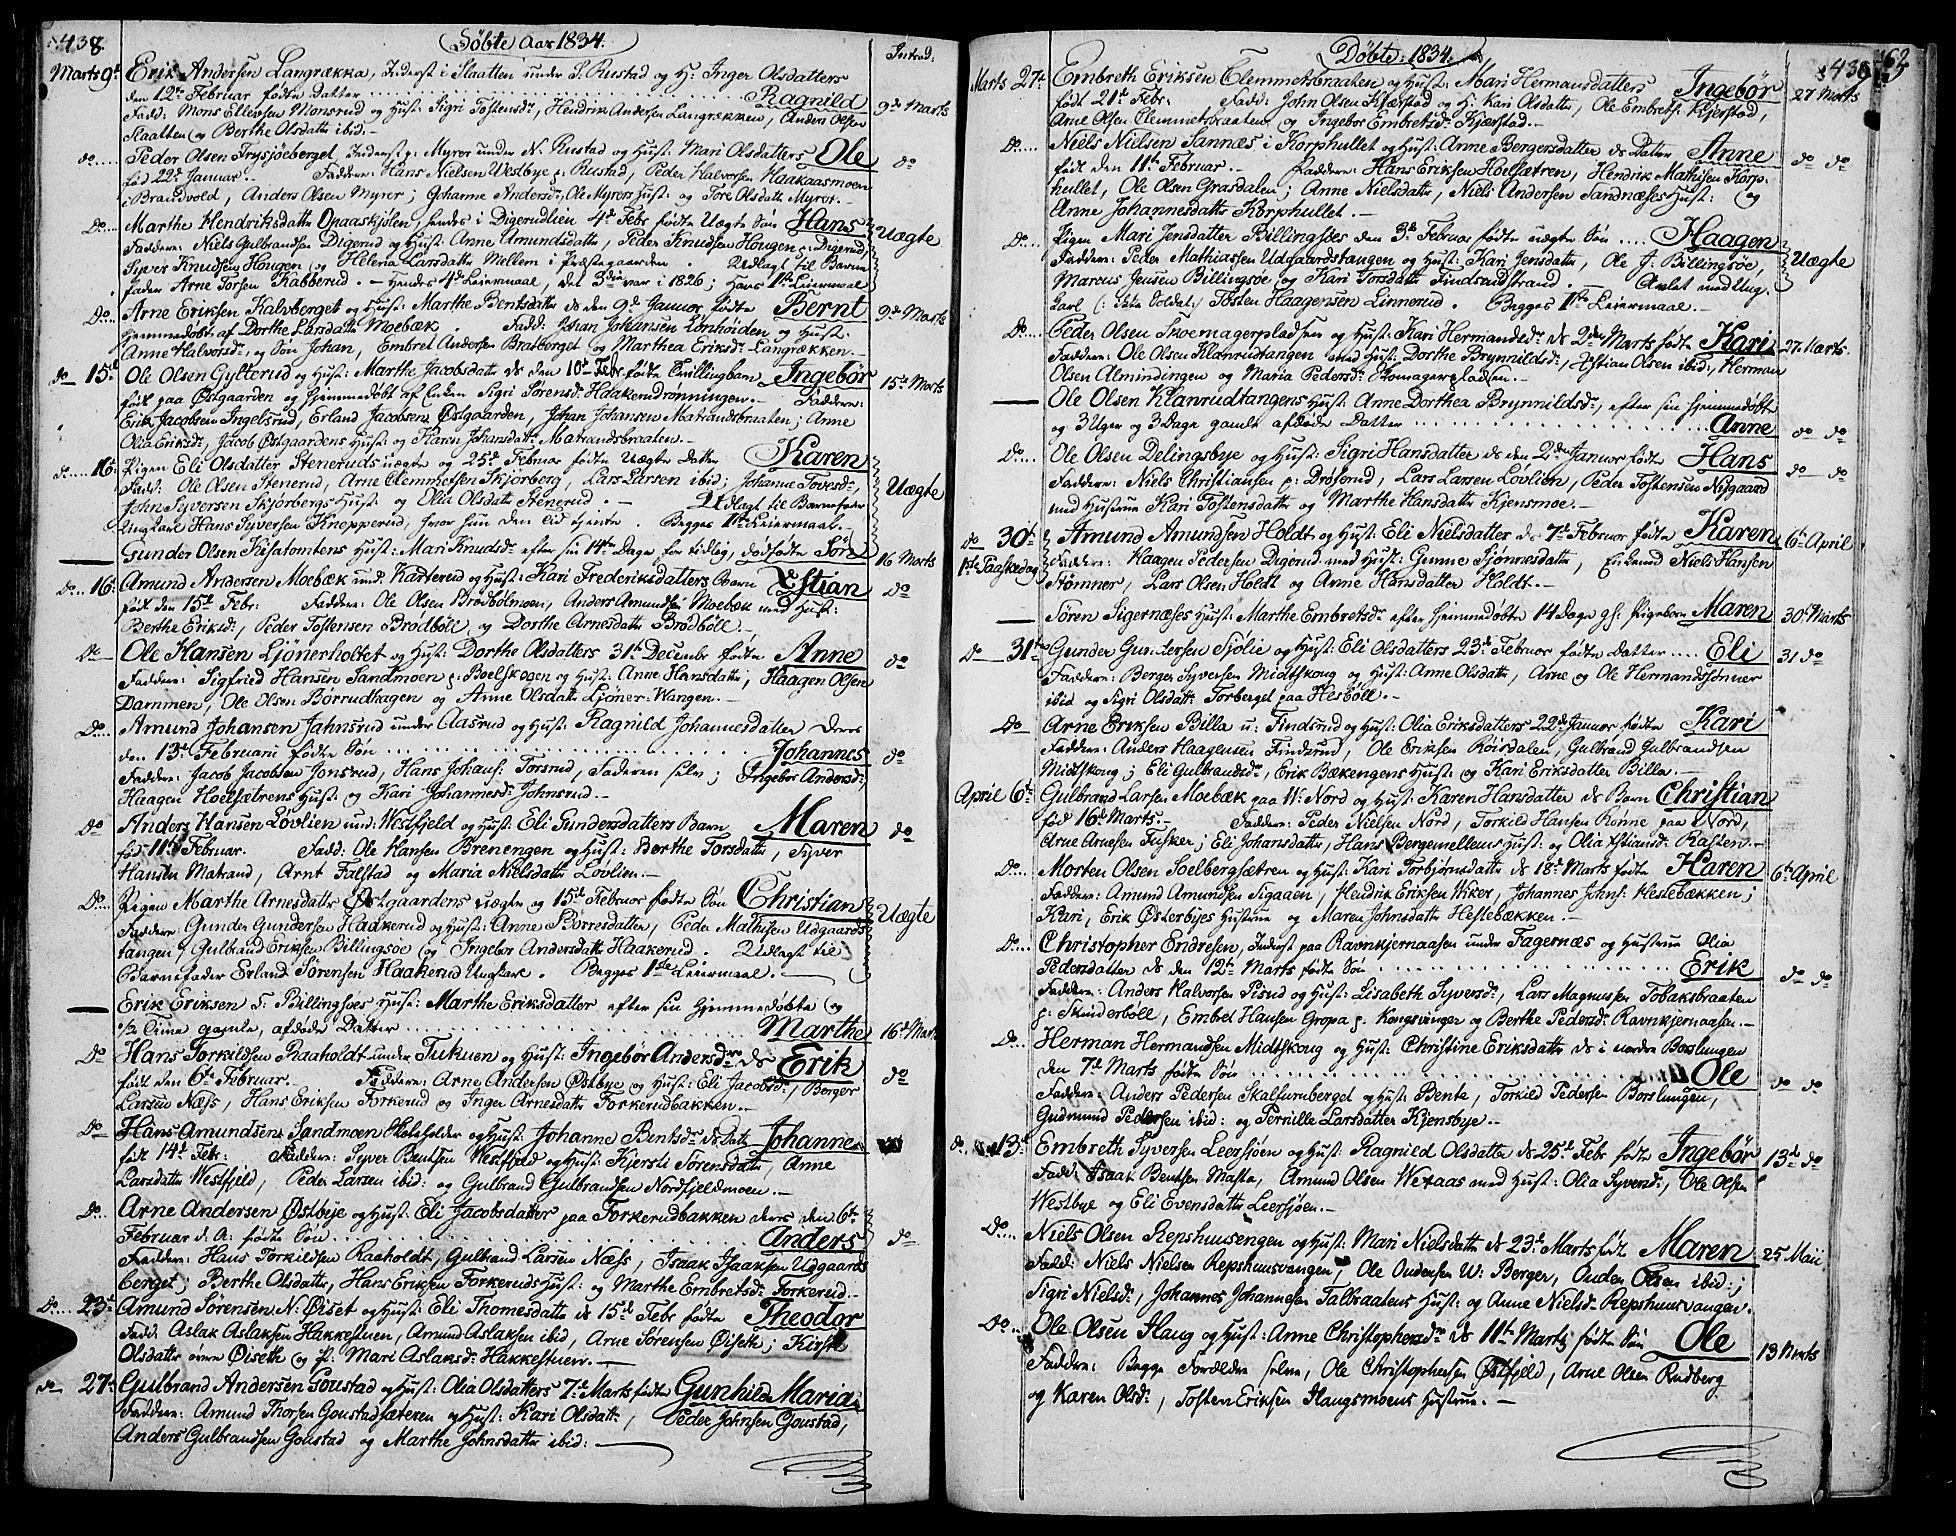 438.
Döbte Aar 1834.
Introd:
Marts 9d Erik Andersen Langrækka, Inderst i Slaatten under S: Rustad og H: Inger Olsdatters
den 12te Februar födte Datter ..... Ragnild 9de Marts
Fadd: Mons Ellevsen Monsrud og Hust: Sigri Tostensdr, Hendrik Andersen Langrækken, Anders Olsen
Slaatten og Berthe Olsdattr ibid:-
do.... Peder Olsen Trysjöeberget, Inderst p: Myrer under N. Rustad og Hust: Mari Olsdatters Ole do
föd 22d Januar. Faddere: Hans Nielsen Westbye p: Rustad, Peder Halvorsen Haakaasmoen
i Brandvold, Anders Olsen Myrer; Johanne Andersdr, Ole Myrers Hust: og Tore Olsdattr Myrer.-
Do.. Marthe Hendriksdattr Opaaskjölen, hendes i Digerudlien 4d Febr födte Uægte Sön Hans Uægte
Faddere: Niels Gulbrandsen Digerud og Hust: Anne Amundsdattr, Peder Knudsen Hougen p: Digerud,
Syver Knudsen Hougen og Helena Larsdattr Mellem i Præstegaarden. Udlagt til Barne
fader Arne Torsen Kabberud. - Hendes 4d Leiermaal, den 3die var i 1826; Hans 1ste Leiermaal
Do.. Arne Eriksen Kalvberget og Hust: Marthe Bentsdattr ds den 9d Januar födte Bernt 9de Marts
Hjemmedöbt af Dorthe Larsdattr Moebæk. Fadd: Johan Johansen Lönhöiden og Hust:
Anne Halvorsdr, og Sön Johan, Embret Andersen Bratberget og Marthea Eriksdr Langrækken.-
do 15d Ole Olsen Gylterud og Hust: Marthe Jacobsdattr ds den 10de Febr födte Tvillingbarn Ingebör 15de Marts
födt paa Östgaarden og hjemmedöbt af Enken Sigri Sörensdr Haakendrönningen.- Faddere:
Erik Jacobsen Ingelsrud, Erland Jacobsen Östgaarden, Johan Johansen Matrandsbraaten; Anne
Olia Eriksdr, Jacob Östgaardens Hust: og Karen Johansdattr Matrandsbraaten.-
do...16: Pigen Eli Olsdatter Steneruds uægte og 25d Februar födte Uægte Datter Karen Uægte
Fadd: Ole Olsen Stenerud, Arne Clemmetsen Skjörberg, Lars Larsen ibid; Johanne Tovesdr,
John Syversen Skjörbergs Hust: og Olia Olsdattr Stenerud. - Udlagt til Barnefader
Ungkarl Hans Syversen Knepperud, hvor hun den tid tjente. Begges 1ste Leiermaal.-
Gunder Olsen Keisatomtens Hust: Mari Knudsdr efter sin 14ten Dage for tidlig, dödfödte Sön 16 Marts
Do... 16: Amund Andersen Moebæk und: Karterud og Hust: Kari Frederiksdatters Barn Xstian Do
födt den 15d Febr: Faddere: Ole Olsen Brödbölmoen, Anders Amundsen Moebæk med Hust:
Berthe Eriksdr, Peder Tostensen Brödböll og Dorthe Arnesdattr Brödböll.-
Do Ole Hansen Ljönerholtet og Hust: Dorthe Olsdatters 31te December födte Anne do
Faddere: Sigfried Hansen Sandmoen p: Boelskogen og Hust: Anne Hansdattr, Haagen Olsen
Dammen, Ole Olsen Börrudhagen og Anne Olsdattr Ljöner-Wangen.-
Do.. Amund Johansen Jahnsrud under Aasrud og Hust: Ragnild Johannesdatter deres
den 13d Februarii födte Sön ..... Johannes do
Faddere: Jacob Jacobsen Jonsrud, Hans Johans: Torsrud, Faderen selv; Ingebor Andersdr,
Haagen Hoelsætrens Hust: og Kari Johannesdr Johnsrud.-
Do Anders Hansen Lövlien und: Westfjeld og Hust: Eli Gundersdatters Barn Maren do
föd 11te Februar. Fadd: Ole Hansen Brenengen og Hust: Berthe Torsdattr, Syver
Hansen Matrand, Arnt Falstad og Maria Nielsdattr Lövlien.-
Do.. Pigen Marthe Arnesdattr Östgaardens uægte og 15d Februar födte Sön Christian Uægte
Faddere: Gunder Gundersen Haakerud og Hust: Anne Börresdatter, Peder Mathisen Udgaards
tangen, Gulbrand Eriksen Billingsöe og Ingebor Andersdattr Haakerud. - Udlagt til
Barnefader Erland Sörensen Haakerud Ungkarl. Begges 1ste Leiermaal. -
Erik Eriksen S: Billingsöes Hust: Marthe Eriksdatter efter sin Hjemmedöbte og
1/2 Time gamle, afdöde Datter ..... Marthe 16d Marts
Do Hans Torkildsen Raaholdt under Tukuen og Hust: Ingebör Andersdr ds Erik do
födt den 6te Februar. Faddere: Arne Andersen Östbye og Hust: Eli Jacobsdr, Berger
Larsen Næss, Hans Eriksen Forkerud og Inger Arnesdattr Forkerudbakken.-
Do Hans Amundsen Sandmoen Skoleholder og Hust: Johanne Bentsdr ds Dattr Johanne
födt 14d Febr: Faddere: Syver Bentsen Westfjeld og Hust: Kjersti Sörensdattr, Anne
Larsdattr Westfjeld, Peder Larsen ibid: og Gulbrand Gulbrandsen Nordfjeldmoen.-
Do.. Arne Andersen Östbye og Hust: Eli Jacobsdatter paa Forkerudbakken deres den 6te
Februar d. A: födte Sön ..... Anders do
Faddere: Hans Torkildsen Raaholdt, Gulbrand Larsen Næss, Isaak Isaaksen Udgaards
berget; Berthe Olsdattr, Hans Eriksen Forkeruds Hust: og Marthe Embretsdr Forkerud.-
do.... 23d Amund Sörensen N: Öiset og Hust: Eli Thomesdattr ds 15d Febr födte Theodor
Fadd: Aslak Aslaksen Hakkestuen, Amund Aslaksen ibid, Arne Sörensen Öiseth; Kirsti
Olsdattr övere Öiseth og P: Mari Aslaksdr Hakkestuen.-
do 27: Gulbrand Andersen Goustad og Hust: Olia Olsdatters 7d Marts födte Gunhild Maria
Faddere: Amund Thorsen Goustadsæteren og Hust: Kari Olsdattr, Peder Johnsen Goustad,
Anders Gulbrandsen Goustad og Marthe Johnsdattr ibid:-
Döbte: 1834.
439
Marts 27d Embreth Eriksen Clemmetsbraaten og Hust: Mari Hermansdatters Ingebör 27 Marts
födt 21d Febr. Fadd: John Olsen Kjærstad og H: Kari Olsdattr, Ole Embrets: Kjærstad,
Arne Olsen Clemmetsbraaten og Ingebor Embretsdr Kjærstad.-
Do.. Niels Nielsen Sannæs i Korphullet og Hust: Anne Bergersdatter ds Datter Anne do do
födt den 11te Februar. - Faddere: Hans Eriksen Hoelsætren, Hendrik Mathisen Korp-
hullet, Ole Olsen Grasdalen; Anne Nielsdattr, Niels Andersen Sandnæses Hust: og
Anne Johannesdattr Korphullet.-
Do. Pigen Mari Jensdatter Billingsöes den 3d Februar födte uægte Sön .... Haagen Uægte
Faddere: Peder Mathiassen Udgaardstangen og Hust: Kari Jensdattr, Ole J: Billingsöe,
Marcus Jensen Billingsöe og Kari Torsdattr Findsrudstrand. Avlet med Ung-
karl (: ikke Soldat:) Tosten Haagensen Linnerud. Begges 1ste Leiermaal.-
Do. Peder Olsen Skoemagerpladsen og Hust: Kari Hermandsdr ds 2den Marts födte Kari 27. Marts.
Faddere: Ole Olsen Klanrudtangen med Hust: Dorthe Brynnildsdr, Xstian Olsen ibid:, Herman
Olsen Almindingen og Maria Pedersdr Skomagerpladsen.-
Ole Olsen Klanrudtangens Hust: Anne Dorthea Brynnildsdr, efter sin hjemmedöbte
og 3 Uger og 3 Dage gamle afdöde Datter ..... Anne do do
Do.. Ole Olsen Delingsbye og Hust: Sigri Hansdatter ds den 2den Januar födte Hans do do
Faddere: Niels Christiansen p: Dröbsrud, Lars Larsen Lövlien, Peder Tostensen Nygaard
med Hustrue Kari Tostensdattr og Marthe Hansdattr Kjensmoe.-
do 30d Amund Amundsen Holdt og Hust: Eli Nielsdatter ds 7d Februar födte Karen 6te April
1ste Paaskedag Faddere: Haagen Pedersen Digerud med Hust: Gunne Sjönnesdattr, Enkemd Niels Hansen
Stömner, Lars Olsen Holdt og Anne Hansdatter Holdt.-
Sören Sigernæses Hust: Marthe Embretsdr efter hjemmedöbte 14 Dage gl: Pigebarn Maren 30d Marts
Do 31te Gunder Gundersen Sjölie og Hust: Eli Olsdatters 23d Februar födte Datter .... Eli 31 do
Faddere: Berger Syversen Midtskoug og Hust: Anne Olsdattr, Arne og Ole Hermandssönner
ibid og Sigri Olsdattr Torberget paa Hesböll.-
Do Arne Eriksen Billa u: Findsrud og Hust: Olia Eriksdatters 22de Januar födte Kari
Faddere: Anders Haagensen Finsrud, Ole Eriksen Röisdalen, Gulbrand Gulbrandsen
Midtskoug; Eli Gulbrandsdr, Erik Bækengens Hust: og Kari Eriksdatter Billa.-
April 6te Gulbrand Larsen Moebæk paa W: Nord og Hust: Karen Hansdatter ds Barn Christian
föd 16d Marts.- Faddere: Peder Nielsen Nord, Torkild Hansen Rönne paa Nord,
Arne Arnesen Fusker; Eli Johansdattr, Hans Bergemellems Hust: og Olia Xstiansdr Rasten.-
Do... Morten Olsen Soelbergsætren og Hust: Kari Torbjörnsdattr ds 18d Marts födte Karen 6te April
Faddere: Amund Amundsen Sigaaen, Hendrik Eriksen Wiker, Johannes Johns: Hestebækken;
Kari, Erik Österbyes Hustrue og Maren Johnsdattr Hestebækken.-
Do.... Christopher Endresen, Inderst paa Ravnkjernaasen under Fagernæs og Hustrue Olia
Pedersdatter ds den 12te Marts födte Sön ..... Erik do do
Faddere: Anders Halvorsen Sisud og Hust: Lisabeth Syversdr, Lars Magnussen Tobaksbraaten
p: Skinderböll, Embret Hansen Gropa p. Kongsvinger og Berthe Pedersdr Ravnkjernaasen.-
Do.. Herman Hermandsen Midtskoug og Hust: Christine Eriksdattr ds i nordre Borslungen
den 7d Marts födte Sön ..... Ole do do
Faddere: Anders Pedersen Skalfurnberget og Hust: Bente, Torkild Pedersen Borslungen,
Gudmund Pedersen ibid: og Pernille Larsdatter Kjensbye.-
Do.. 13d Embreth Syversen Leersjöen og Hust: Ragnild Olsdatter ds 25d Febr födte Ingebör 13d do
Fadd: Isaak Bentsen Masta, Amund Olsen Wexaas med Hust: Olia Syversdr, Ole Olsen
Westbye og Eli Evensdattr Leersjöen.-
Do.. Niels Olsen Repshuusengen og Hust: Mari Nielsdattr ds 23d Marts född Maren 25 Maii
Fadd: Niels Nielsen Repshuusvangen, Ole Oudensen W: Berger, Ouden Olsen ibid:;
Sigri Nielsdr, Johannes Johannesen Talbraatens Hust: og Anne Nielsdr Repshuusvangen.
Do.. Ole Olsen Haug og Hust: Anne Christophersdr ds 11te Marts födte Sön Ole 13
Faddere: Begge Forældre selve, Ole Christophersen Östfjeld, Arne Olsen Rudberg
og Karen Olsdr, Tosten Eriksen Haugsmoens Hustrue.-